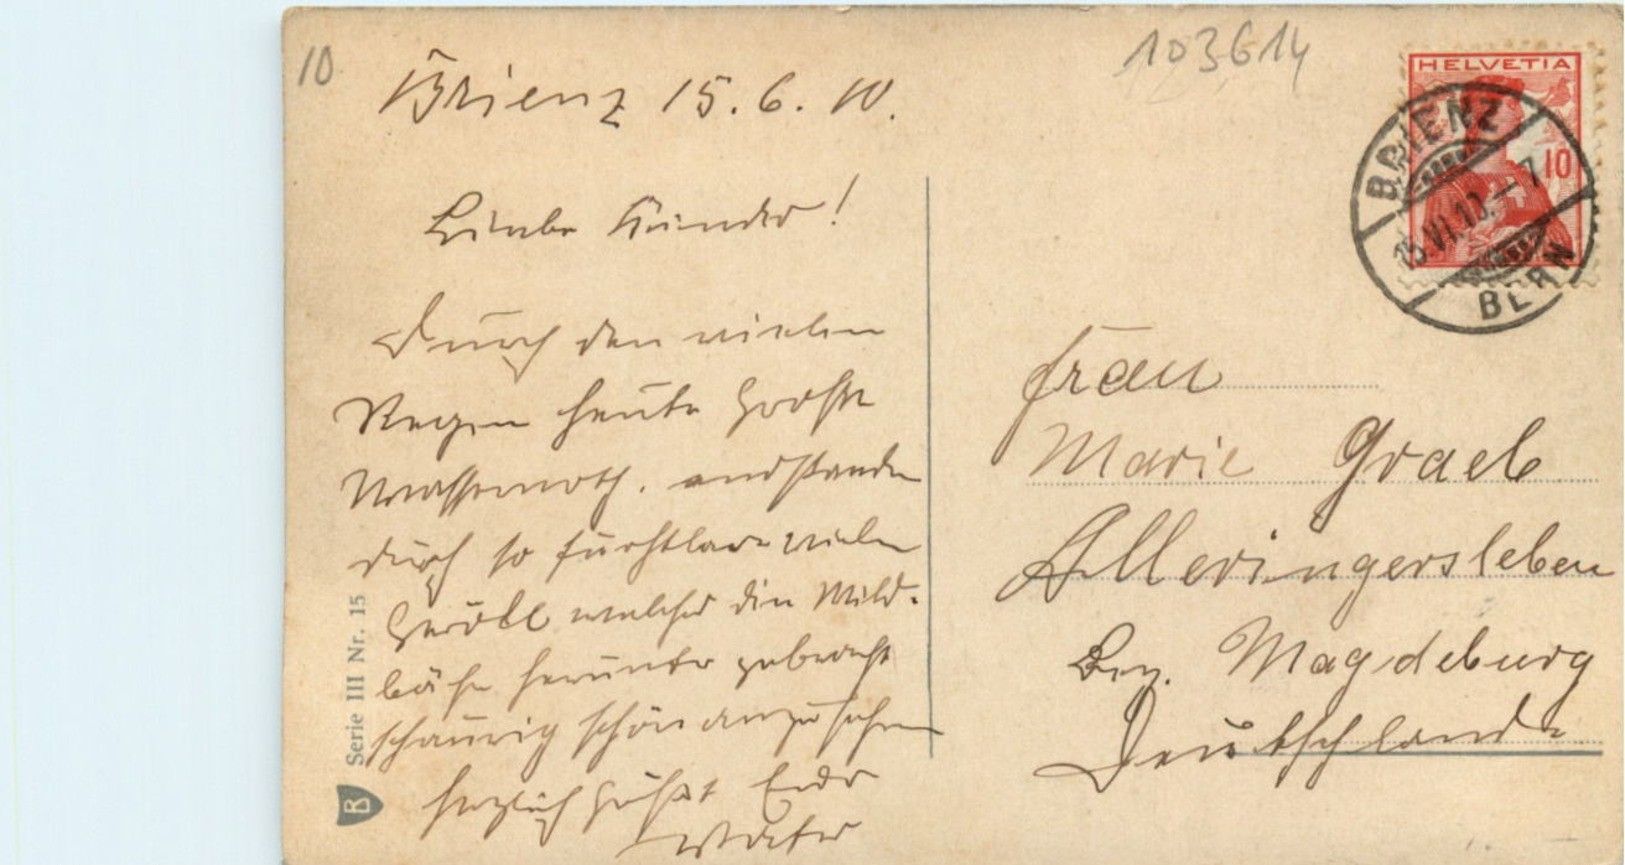 10
103614
Brienz 15.6.10.
HELVETIA
10
BRIENZ
15.VI.10.–7
BERN
Liebe Kinder!
Durch den vielen
Regen heute große
Wassernoth. entstanden
durch so furchtbar viele
Geröll welches die Wild-
bäche herunter gebracht
schaurig schön anzusehen
herzlich grüßt Eier
Vater
Frau
Marie Graeb
Alleringersleben
Bez. Magdeburg
Deutschland
Serie III Nr. 15
B